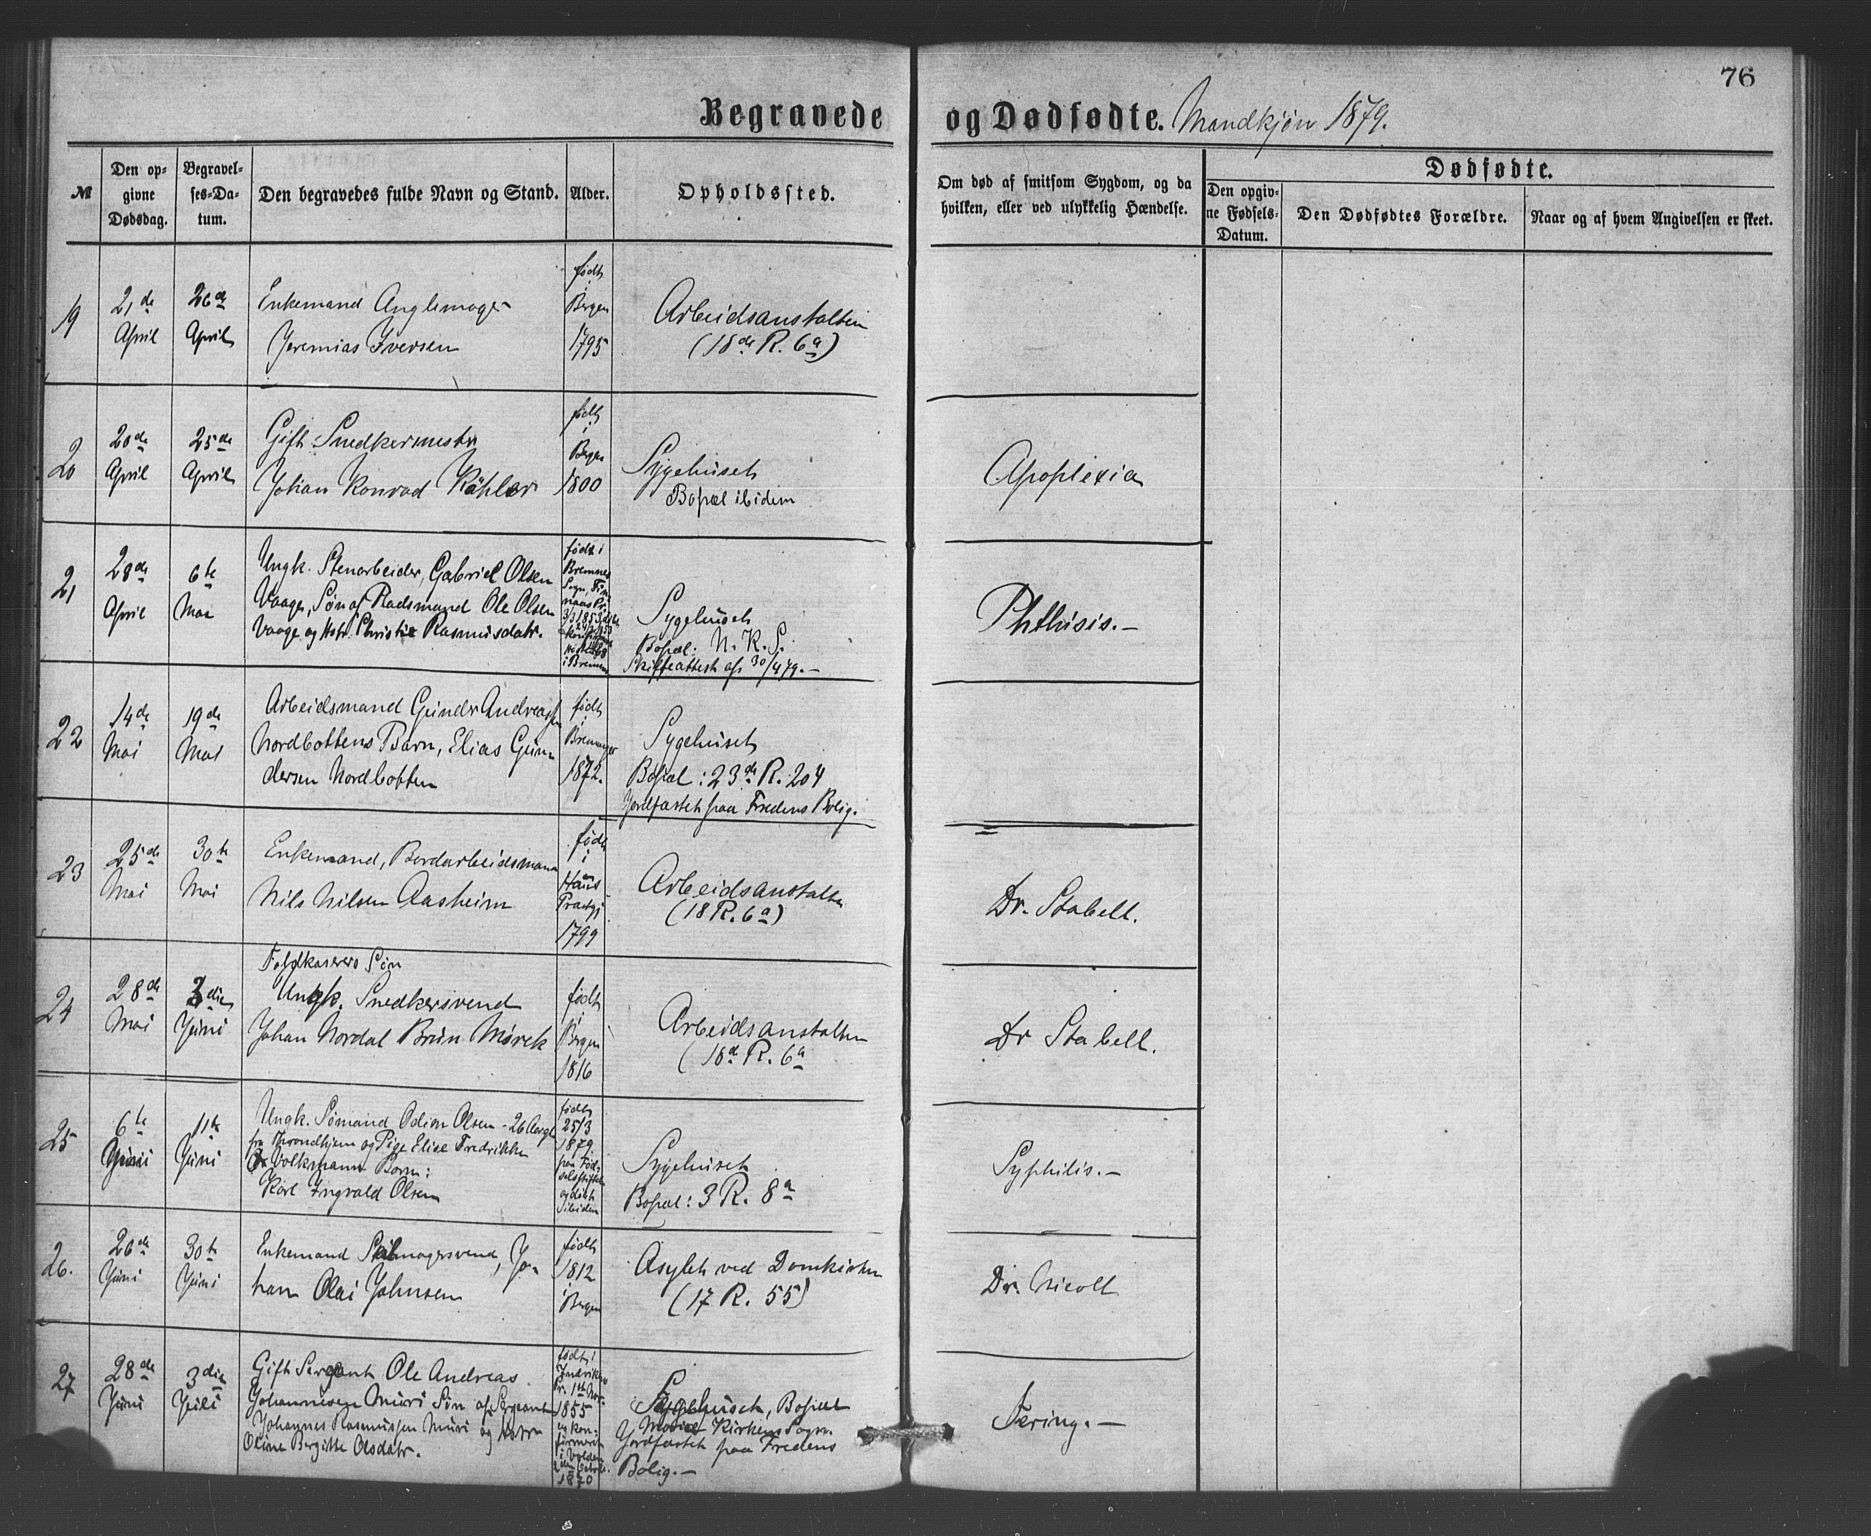 76
Begravede og Dødfødte. Mandkjøn 1879.
№
Den opgivne Dødsdag.
Begravelses-Datum.
Den begravedes fulde Navn og Stand.
Alder.
Opholdssted.
Om død af smitsom Sygdom, og da hvilken, eller ved ulykkelig Hændelse.
Dødfødte.
Den opgivne Fødsels-Datum.
Den Dødfødtes Forældre.
Naar og af hvem Angivelsen er skeet.
19
21de April
26de April
Enkemand Anglemager
Jeremias Iversen
født i Bergen 1795
Arbeidsanstalten
(18de R. 6a)
20
20de April
25de April
Gift Snedkermester
Johan Konrad Köhler
født i Bergen 1800
Sygehuset
Bopæl ibidem
Apoplexia
21
28de April
6te Mai
Ungk. Stenarbeider, Gabriel Olsen
Vaage, Søn af Radsmand Ole Olsen
Vaage og Hstr. Christie Rasmusdatr.
født i
Bremnes
Sogn, Fin-
naas Pr.
Sygehuset
Bopæl: N. K. S.
Skifteattest af 30/4 79.—
Phthisis.—
22
14de Mai
19de Mai
Arbeidsmand Gunder Andreassen
Nordbottens Barn, Elias Gun
dersen Nordbotten
født i Bremanger 1872.
Sygehuset
Bopæl: 23de R. 204
Jordfæstet paa Fredens Bolig.
23
25de Mai
30te Mai
Enkemand, Bordarbeidsmand
Nils Nilsen Aasheim
født i Haus Præstgj 1799
Arbeidsanstalten
(18 R. 6a)
Dr. Stabell.
24
28de Mai
3die Juni
Søn
Ungk. Snedkersvend
Johan Nordal Brun Mørck
født i Bergen 1816
Arbeidsanstalten
(18d R. 6a
Dr Stabell.
25
6te Juni
11te Juni
Ungk. Sømand Odin Olsen - 26 Aargl
fra Throndhjem og Pige Elise Fredrikke
Volkmann Barn:
Karl Ingvald Olsen
født
25/3
1879
paa Fød-
selsstiftelsen
og døbt
ibidem
Sygehuset
Bopæl: 3 R. 8a
Syphilis.—
26.
26de Juni
30te Juni
Enkemand Seilmagersvend, Jo-
han Olai Johnsen
født 1812 i Bergen
Asylet ved Domkirken
(17 R. 55)
Dr. Nicoll
27
28de Juni
3die Juli
Gift Sergeant Ole Andreas
Johannesen Muri Søn af Sergeant
Johannes Rasmussen Muri og Hstru
Oline Bergitte Olsdatr.
født i
Indviken
Pr. 1ste Nov.
1855
og kon-
firmeret
i Volden
2den Octob.
1870
Sygehuset, Bopæl
Kirkens Sogn.
Jordfæstet paa Fredens
Bolig.—
Tæring.—